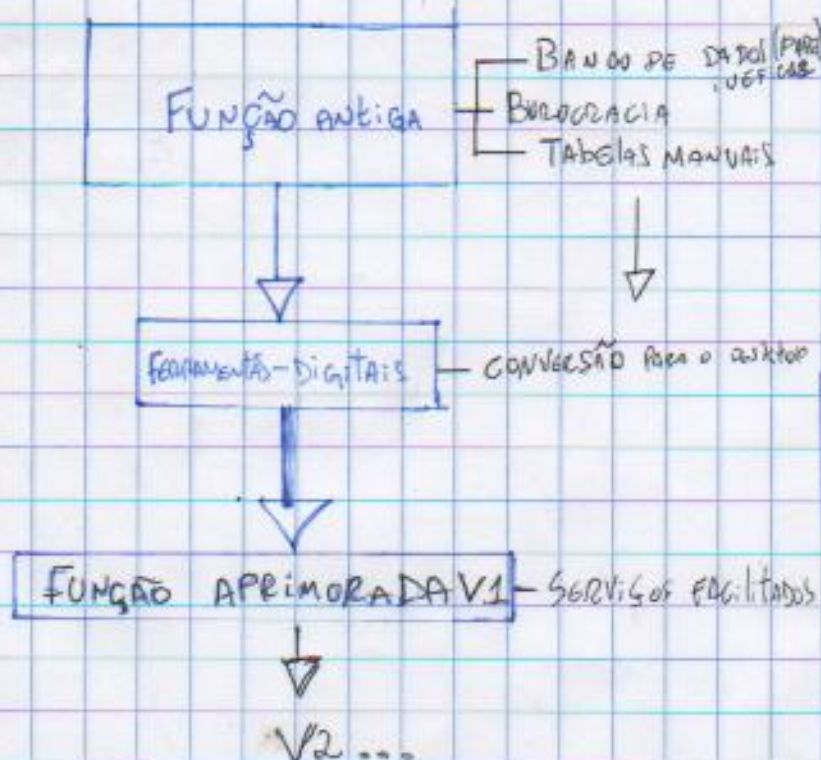 FUNÇÃO ANTIGA
BANDO DE DADOS
BUROCRACIA
TABELAS MANUAIS
FERRAMENTAS-DIGITAIS
CONVERSÃO PARA O DESKTOP
FUNÇÃO APRIMORADA V1
SERVIÇOS FACILITADOS
V2 ...